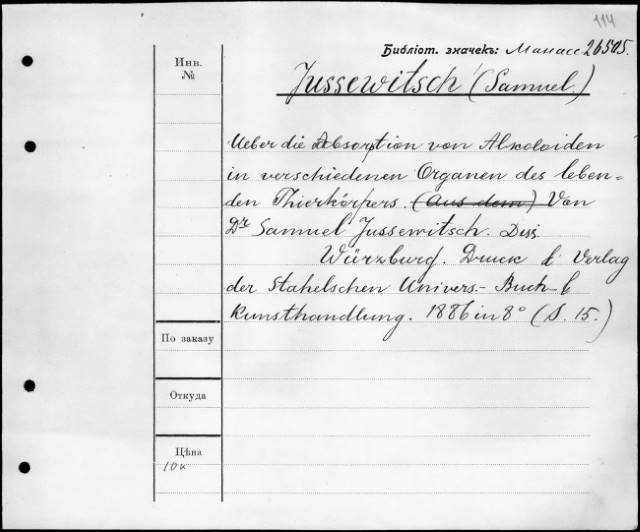 114
Библіот. значекъ: Манасс 26505.
Инв. №
Jussewitsch (Samuel)
Ueber die Absorption von Alcoloiden
in verschiedenen Organen des leben-
den Thierkörpers. (Aus dem) Von
Dr Samuel Jussewitsch. Diss.
Würzburg. Druck & Verlag
der Stahelschen Univers.- Buch- &
Kunsthandlung. 1886 in 8° (S. 15.)
По заказу
Откуда
Цѣна
10 к